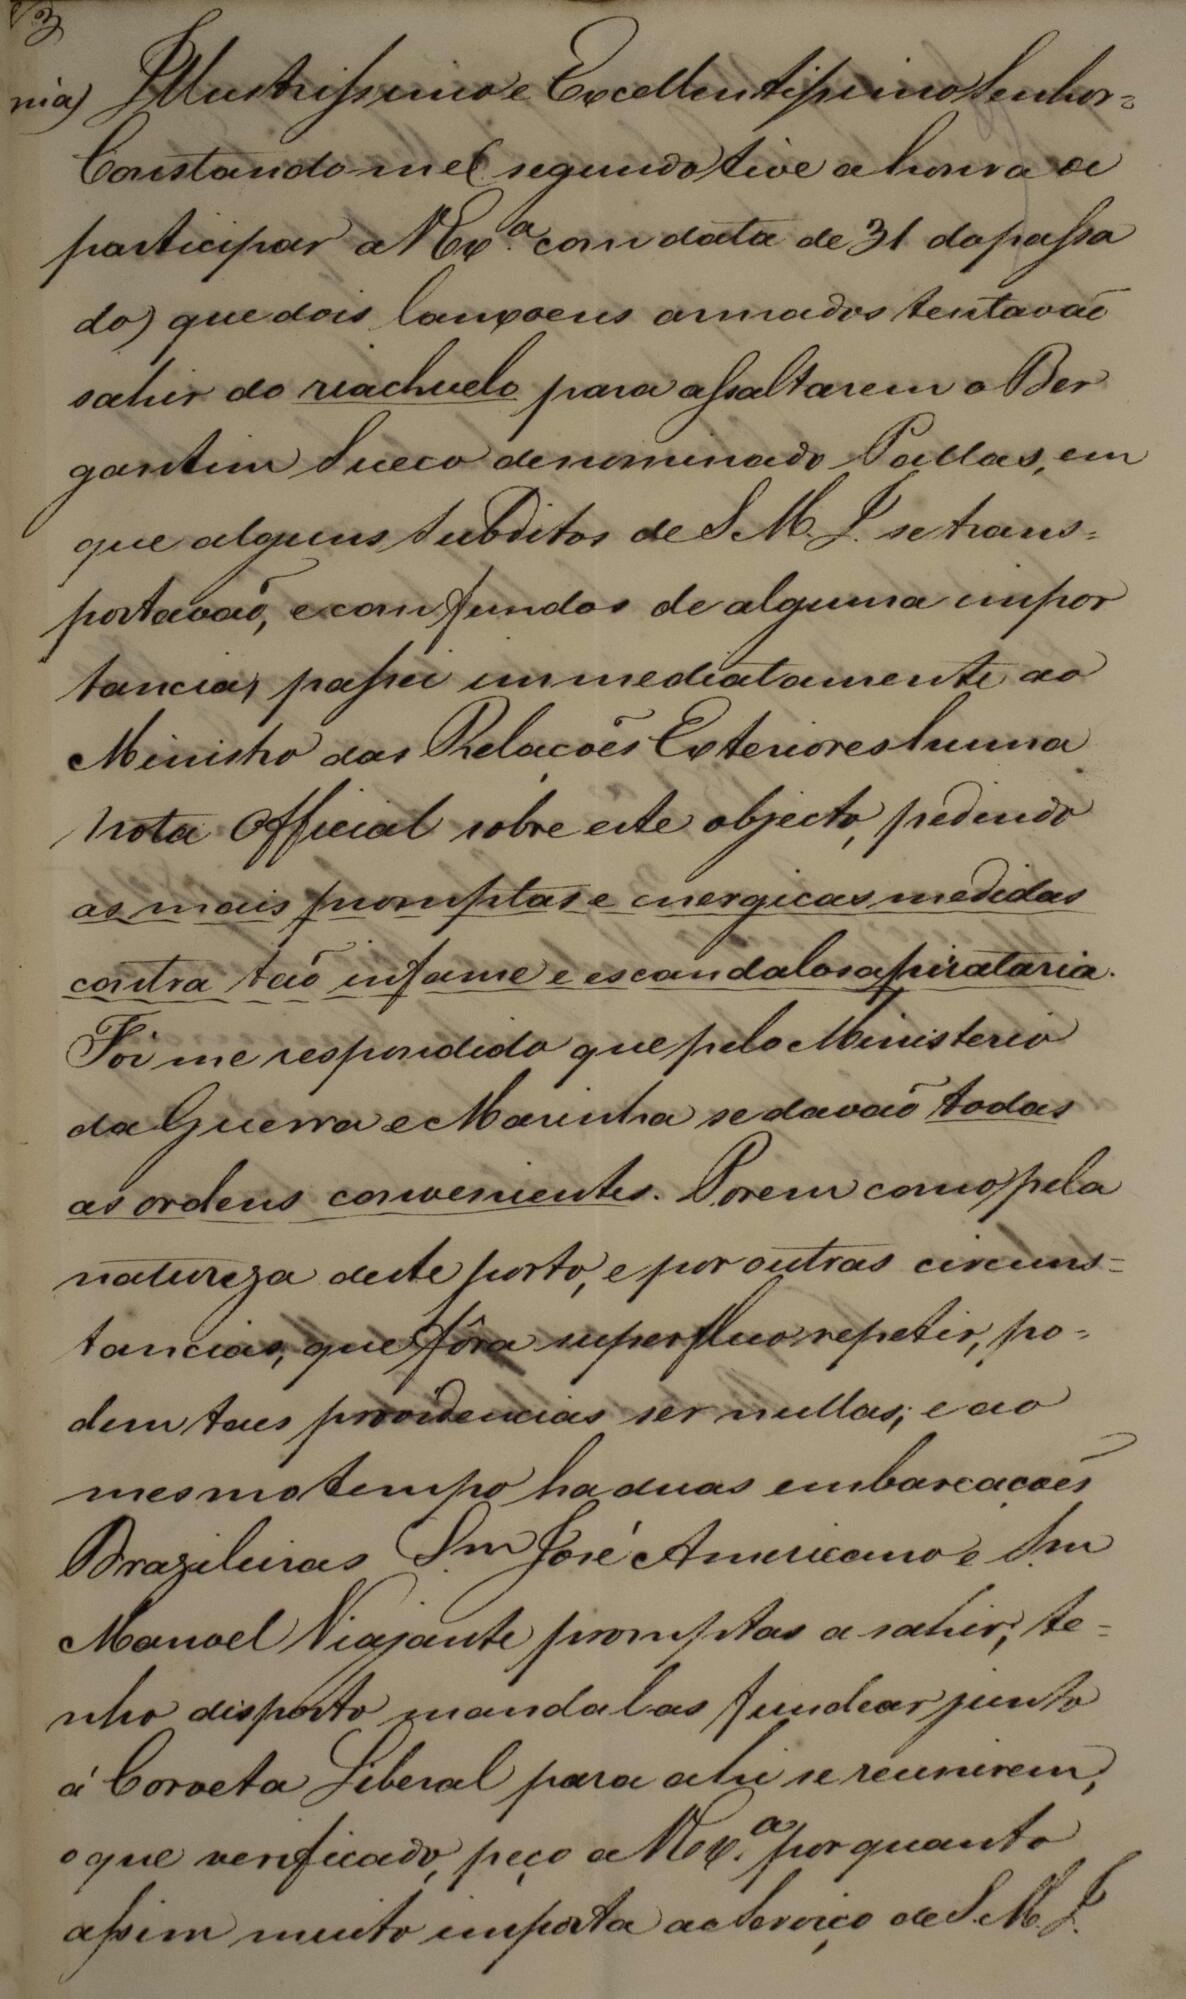 3
nia) Illustrissimo e Excellentissimo Senhor =
Constando me (segundo tive a honra de
participar a V Ex.ª com data de 31 do passa
do) que dois lanxoens armados tentavaõ
sahir do riachuelo para assaltarem o Ber
gantim Sueco denominado Pallas, em
que alguns subditos de S. M. I. se trans=
portavaõ, e com fundos de alguma impor
tancia, passei immediatamente ao
Ministro das Relacoẽs Exteriores huma
Nota Official sobre este objecto, pedindo
as mais promptas e energicas medidas
contra taõ infame e escandalosa pirataria.
Foi me respondido que pelo Ministerio
da Guerra e Marinha se davaõ todas
as ordens convenientes. Porem como pela
natureza deste porto, e por outras circuns=
tancias, que fôra superfluo repetir, po=
dem taes providencias ser nullas; e ao
mesmo tempo ha duas embarcacoẽs
Brazileiras S.m José Americano e S.m
Manoel Viajante promptas a sahir; te=
nho disposto mandalas fundear junto
á Corveta Liberal para ahi se reunirem,
o que verificado, peço a V Ex.ª por quanto
assim muito importa ao Serviço de S. M. I.